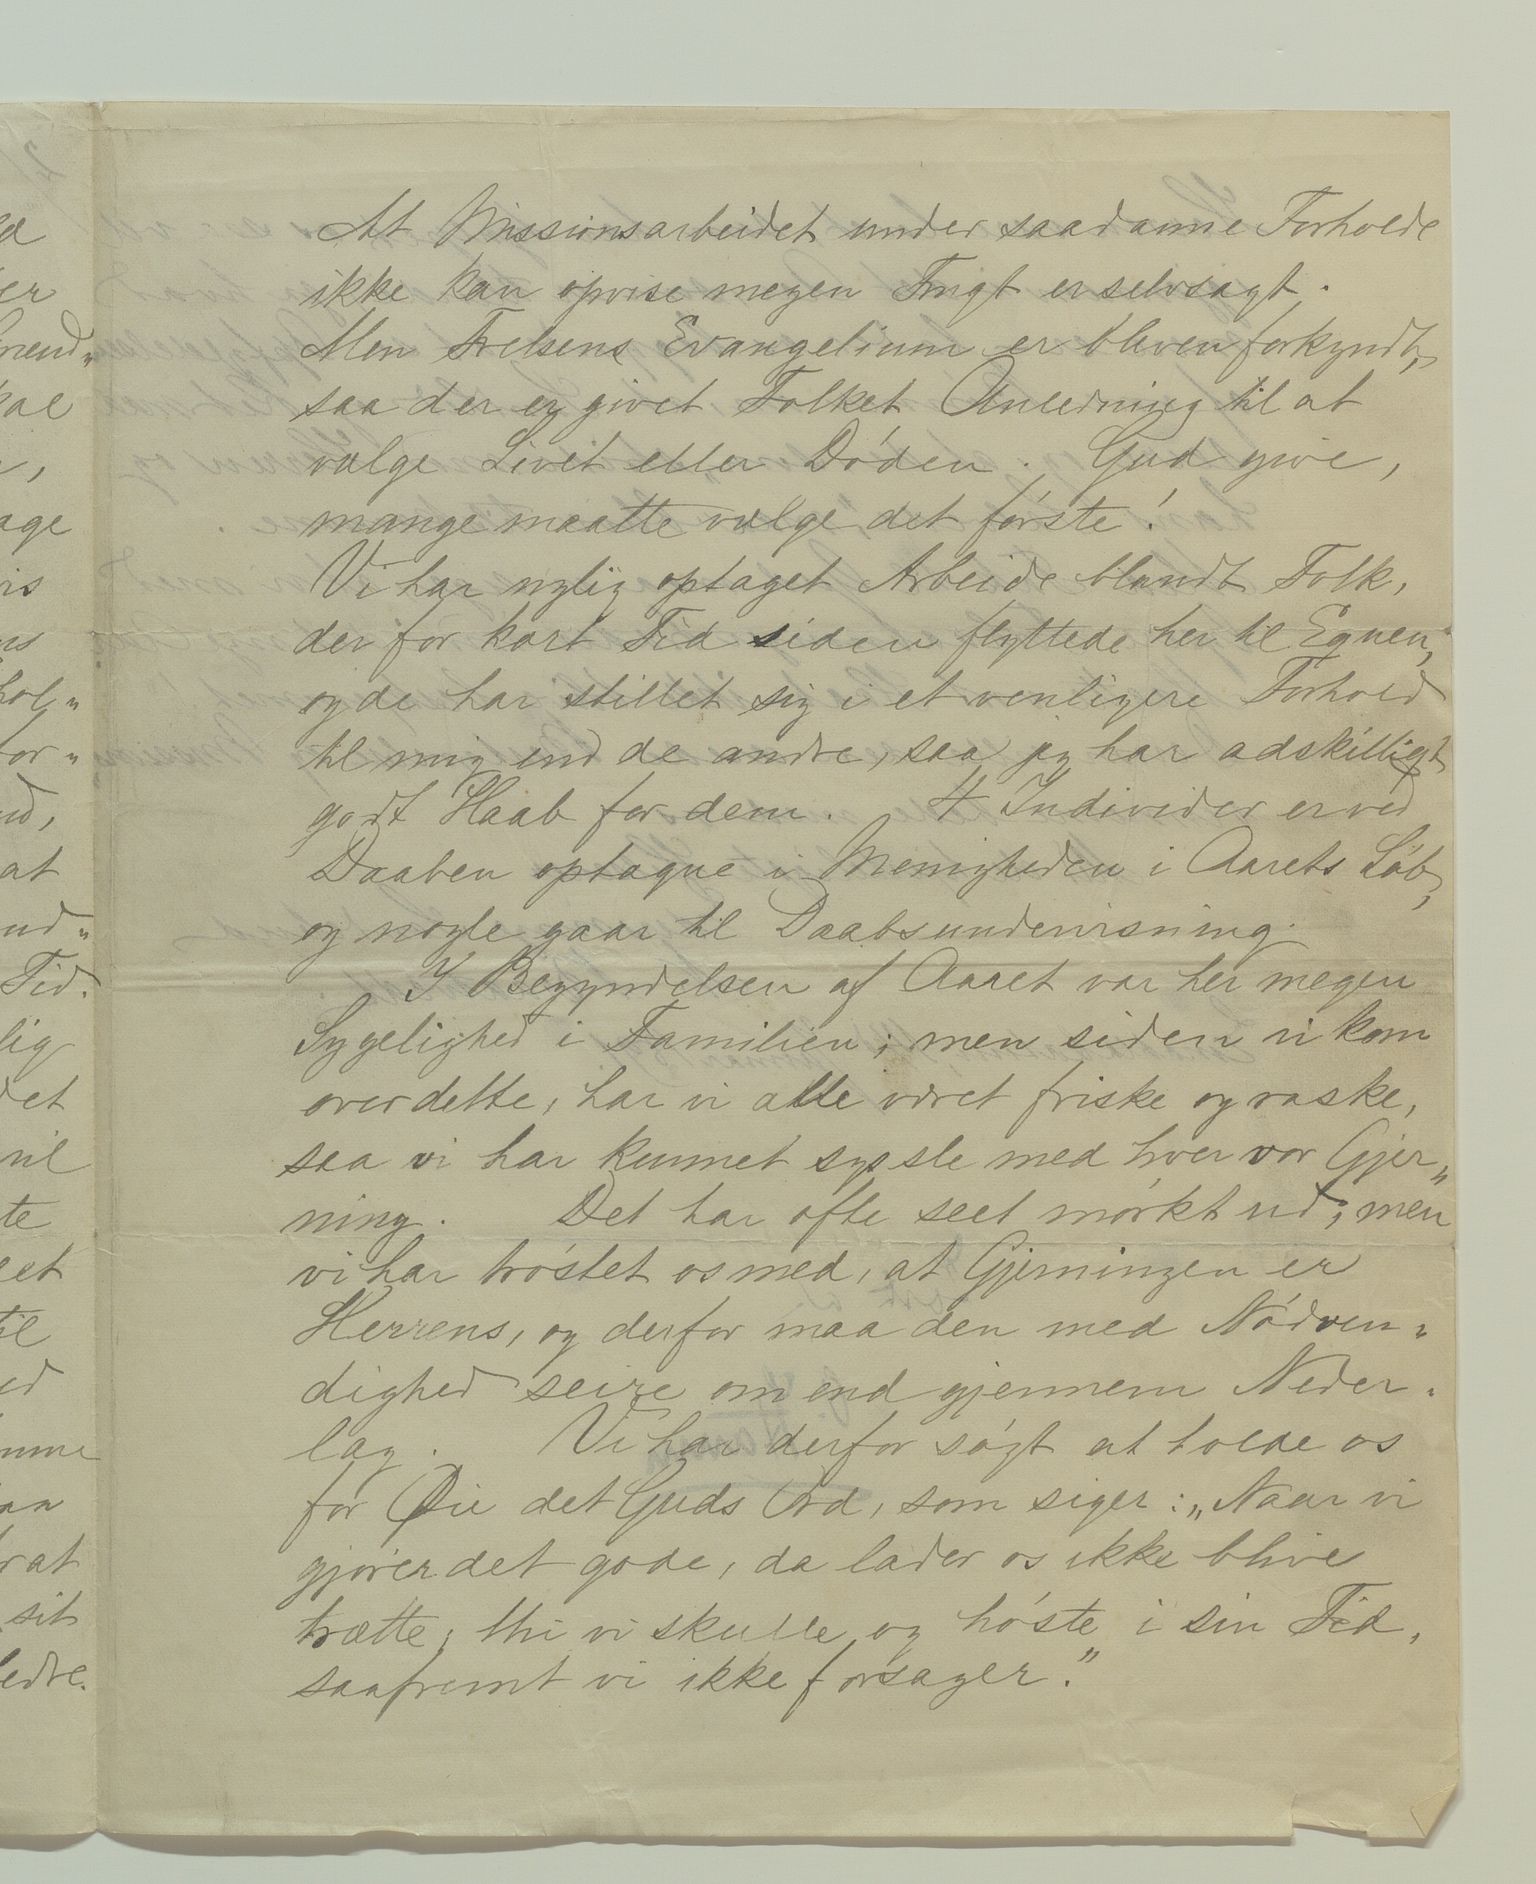 At Missionsarbeidet under saadanne Forholde
ikke kan opvise megen Frugt er selvsagt.
Men Frelsens Evangelium er bleven forkyndt,
saa der er givet Folket Anledning til at
vælge Livet eller Döden. Gud give,
mange maatte vælge det förste!
Vi har nylig optaget Arbeide blandt Folk,
der for kort Tid siden flyttede her til Egnen,
og de har stillet sig i et venligere Forhold
til mig end de andre, saa jeg har adskilligt
godt Haab for dem. 4 Individer er ved
Daaben optagne i Menigheden i Aarets Löb,
og nogle gaar til Daabsundervisning.
I Begyndelsen af Aaret var her megen
Sygelighed i Familien; men siden vi kom
over dette, har vi alle været friske og raske,
saa vi har kunnet sysle med hver vor Gjer„
ning. Det har ofte seet mörkt ud; men
vi har tröstet os med, at Gjerningen er
Herrens, og derfor maa den med Nödven„
dighed seire om end gjennem Neder„
lag. Vi har derfor sögt at holde os
for Øie det Guds Ord, som siger: „Naar vi
gjör det gode, da lader os ikke blive
trætte; thi vi skulle og höste i sin Tid,
saafremt vi ikke forsager."